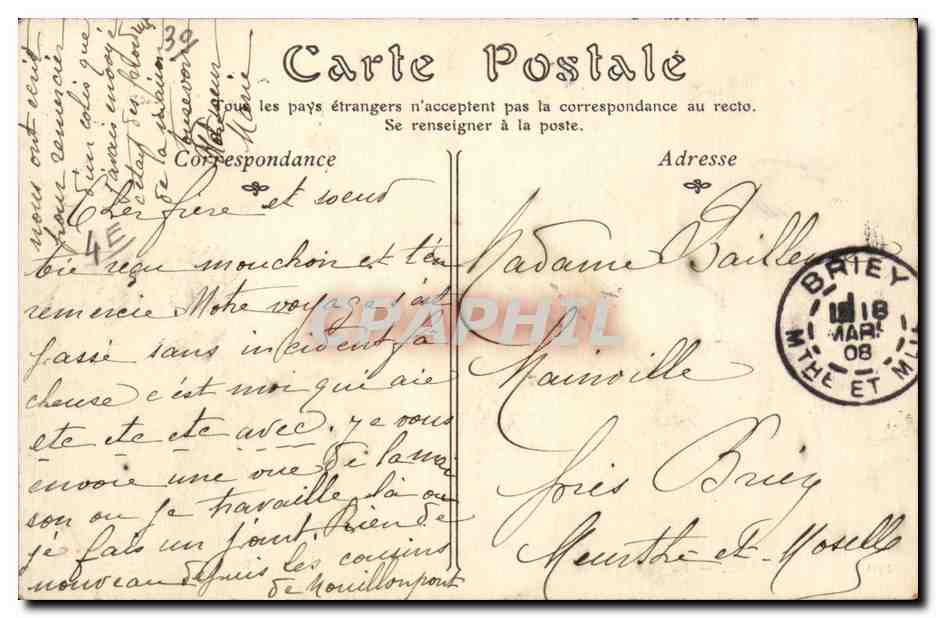 Carte Postale
Tous les pays étrangers n'acceptent pas la correspondance au recto.
Se renseigner à la poste.
Correspondance
Adresse
39
4E
Cher frère et soeur
reçu mouchon et t'en
remercie Notre voyage s'est
passé sans incident fa
cheuse c'est moi qui aie
etc etc etc avec. Je vous
envoie une vue de la mai
son ou je travaille là ou
je fais un joint. Rien de
nouveau depuis les cousins
de Nouillonpont
nous ont ecrit
pour remercier
d'un colis que
j'avais envoyé
c'etait des
de la maison
Marie
Madame Bailleux
Mainville
près Briey
Meurthe-et-Moselle
BRIEY
18
MAR.
08
MTHE ET MLLE
CPAPHIL